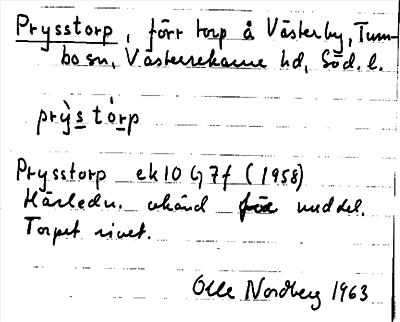 Prysstorp, förr torp å Västerby, Tum-
bo sn, Västerrekarne hd, Söd. l.
prỳs tò́rp
Prysstorp ek 10 G 7f (1958)
Härledn. okänd för meddel.
Torpet rivet.
Olle Nordberg 1963